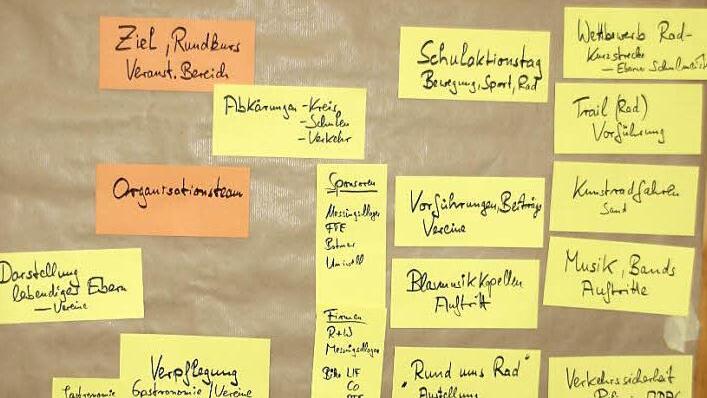 Ziel, Rundkurs
Veranst. Bereich
Abkärungen - Kreis
- Schulen
- Verkehr
Organisationsteam
Darstellung
lebendiges Ebern
- Vereine
Verpflegung
Gastronomie/Vereine
Gastronomie
Sponsoren
FTE
Firmen
R+W
LIF
Co
Schulaktionstag
Bewegung, Sport, Rad
Vorführungen, Beiträge
Vereine
Blasmusik Kapellen
Auftritt
"Rund ums Rad"
Austellung
Wettbewerb Rad-
Kurzstrecke
Trail (Rad)
Vorführung
Kunstradfahren
Sand
Musik, Bands
Auftritte
Verkehrssicherheit